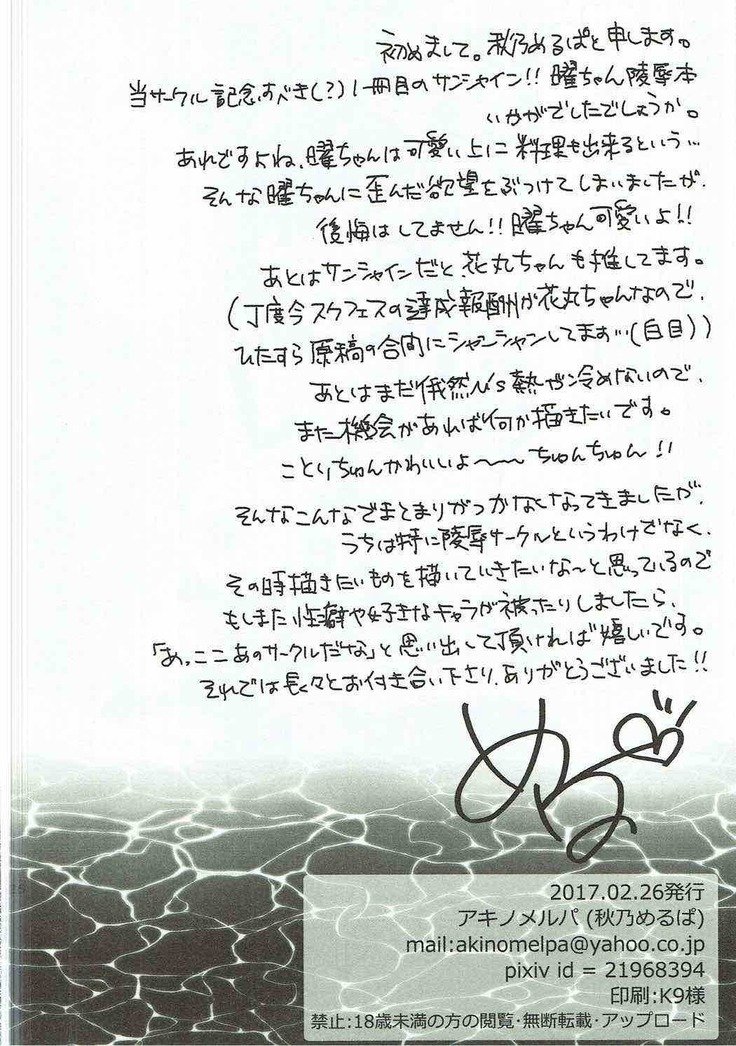 初めまして。秋乃めるぱと申します。
当サークル記念すべき(?)1冊目のサンシャイン!! 曜ちゃん陵辱本
いかがでしたでしょうか。
あれですよね、曜ちゃんは可愛い上に料理も出来るという…
そんな曜ちゃんに歪んだ欲望をぶつけてしまいましたが、
後悔はしてません!! 曜ちゃん可愛いよ!!
あとはサンシャインだと花丸ちゃんも推してます。
(丁度今スクフェスの達成報酬が花丸ちゃんなので、
ひたすら原稿の合間にシャンシャンしてます…(白目))
あとはまだ俄然μ's熱が冷めないので、
また機会があれば何か描きたいです。
ことりちゅんかわいいよ〜〜〜ちゅんちゅん!!
そんなこんなでまとまりがつかなくなってきましたが、
うちは特に陵辱サークルというわけでなく、
その時描きたいものを描いていきたいな〜と思っているので
もしまた性癖や好きなキャラが被ったりしましたら、
「あっ、ここあのサークルだな」と思い出して頂ければ嬉しいです。
それでは長々とお付き合い下さり、ありがとうございました!!
める
2017.02.26発行
アキノメルパ (秋乃めるぱ)
mail:akinomelpa@yahoo.co.jp
pixiv id = 21968394
印刷:K9様
禁止:18歳未満の方の閲覧・無断転載・アップロード